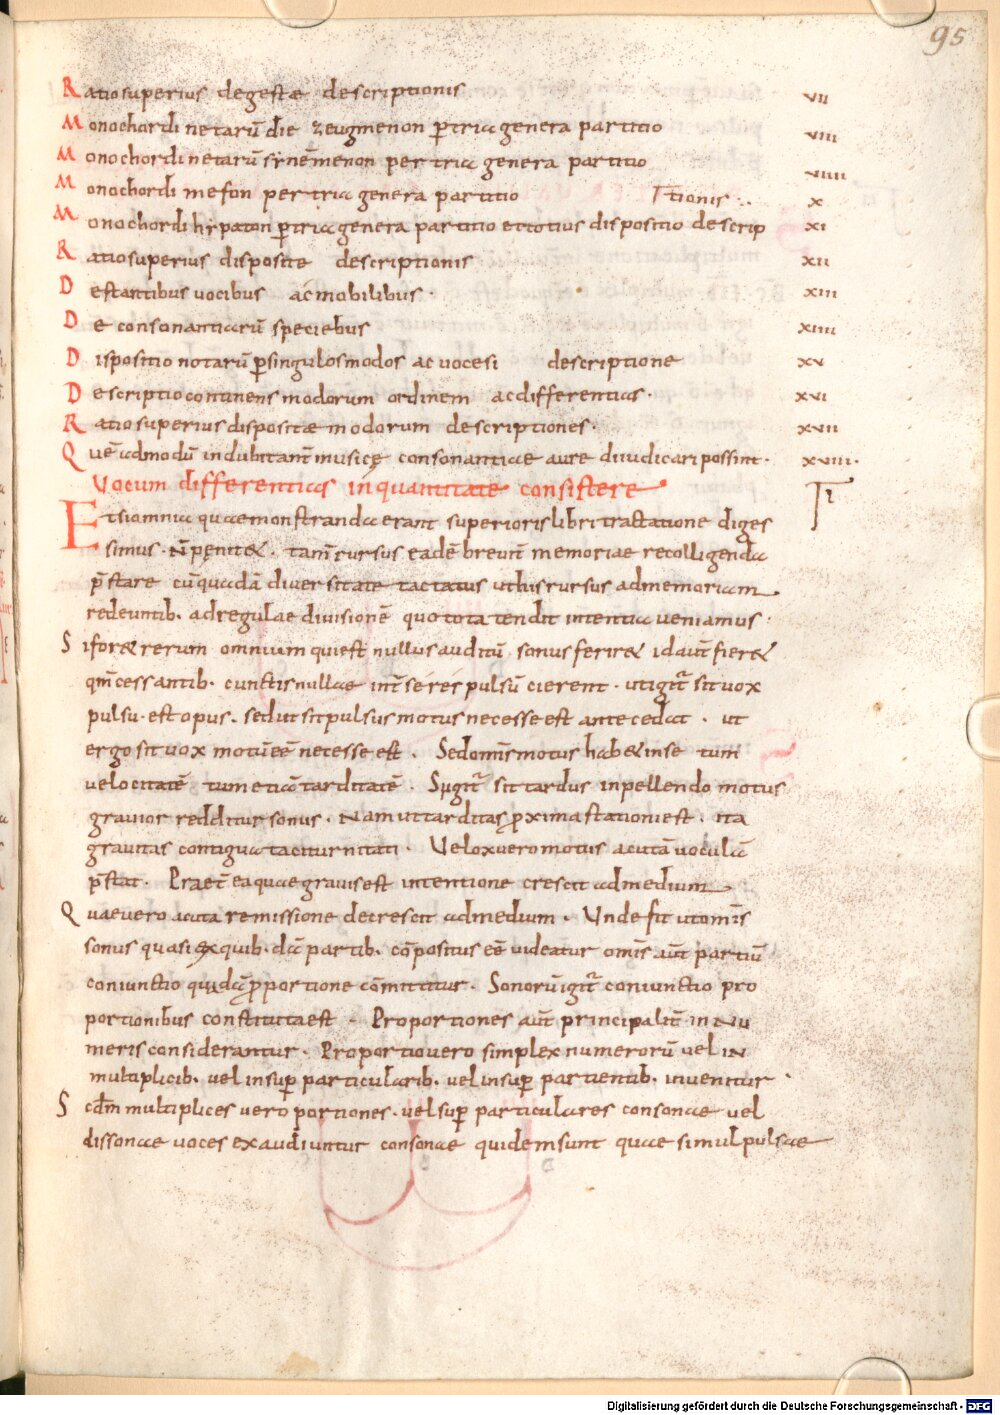 95
Ratio superius degestae descriptionis VII
Monochordi netarū die zeugmenon p tria genera partitio VIII
Monochordi netarū synēmenon per tria genera partitio VIIII
Monochordi meson per tria genera partitio tionis :. X
Monochordi hypaton p tria genera partitio et totius dispositio descrip XI
Ratio superius disposite descriptionis XII
De stantibus vocibus ac mobilibus · XIII
De consonantiarū speciebus XIIII
Dispositio notarū p singulos modos ac voces i descriptione XV
Descriptio continens modorum ordinem ac differentias · XVI
Ratio superius dispositae modorum descriptiones · XVII
Quēadmodū indubitant musicę consonantiae aure diiudicari possint · XVIII ·
Vocum differentias in quantitate consistere I
Etsi omnia quae monstranda erant superioris libri tractatione diges
simus · n̄ pęnit& · tam̄ rursus eadē brevit memoriae recolligenda
p̄stare cū quadā diversitate tactatus ut his rursus ad memoriam
redeuntib · ad regulae divisionē quo tota tendit intentia veniamus ·
Si for& rerum omnium quies nullus auditū sonus ferir& id aut fier&
qm̄ cessantib · cunctis nullae int se res pulsū cierent · ut igit sit vox
pulsu · est opus · sed ut sit pulsus motus necesse est antecedat · ut
ergo sit vox motū eē necesse est · Sed omīs motus hab& in se tum
velocitatē tum etiā tarditatē · Si igit sit tardus in pellendo motus
gravior redditur sonus · Nam ut tarditas pxima stationi est · ita
gravitas contigua taciturnitati · Velox vero motus acutā voculā
p̄stat · Praet ea quae gravis est intentione crescit ad medium
Quae vero acuta remissione decrescit ad medium · Unde fit ut omīs
sonus quasi ex quib · dā partib · cōpositus eē videatur omīs aut partiū
coniunctio quadā pportione cōmittitur · Sonorū igit coniunctio pro
portionibus constituta est · Proportiones aut principalit in nu
meris considerantur · Proportio vero simplex numerorū vel in
multiplicib · vel in sup particularib · vel in sup partientib · invenitur ·
Scdm multiplices vero portiones · vel sup particulares consonae vel
dissonae voces exaudiuntur consonae quidem sunt quae simul pulsae
Digitalisierung gefördert durch die Deutsche Forschungsgemeinschaft - DFG